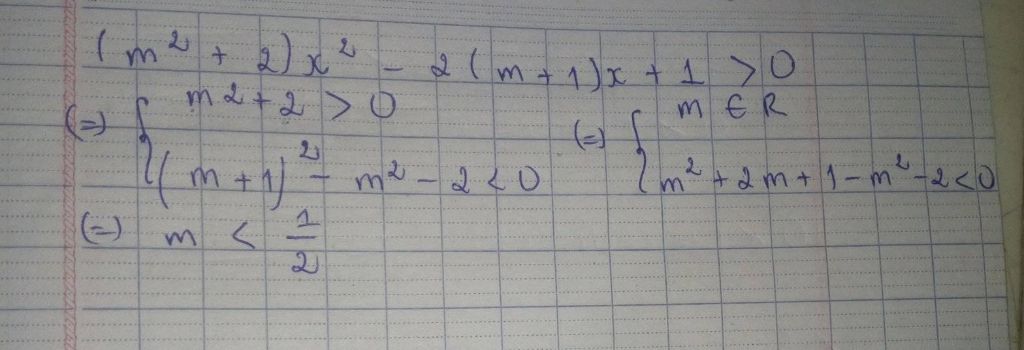 (m² + 2)x² - 2(m+1)x + 1 > 0
(=) { m2+2 > 0
(m+1)² - m² - 2 < 0
(=) { m ∈ R
m² + 2m + 1 - m² - 2 < 0
(=) m < 1/2